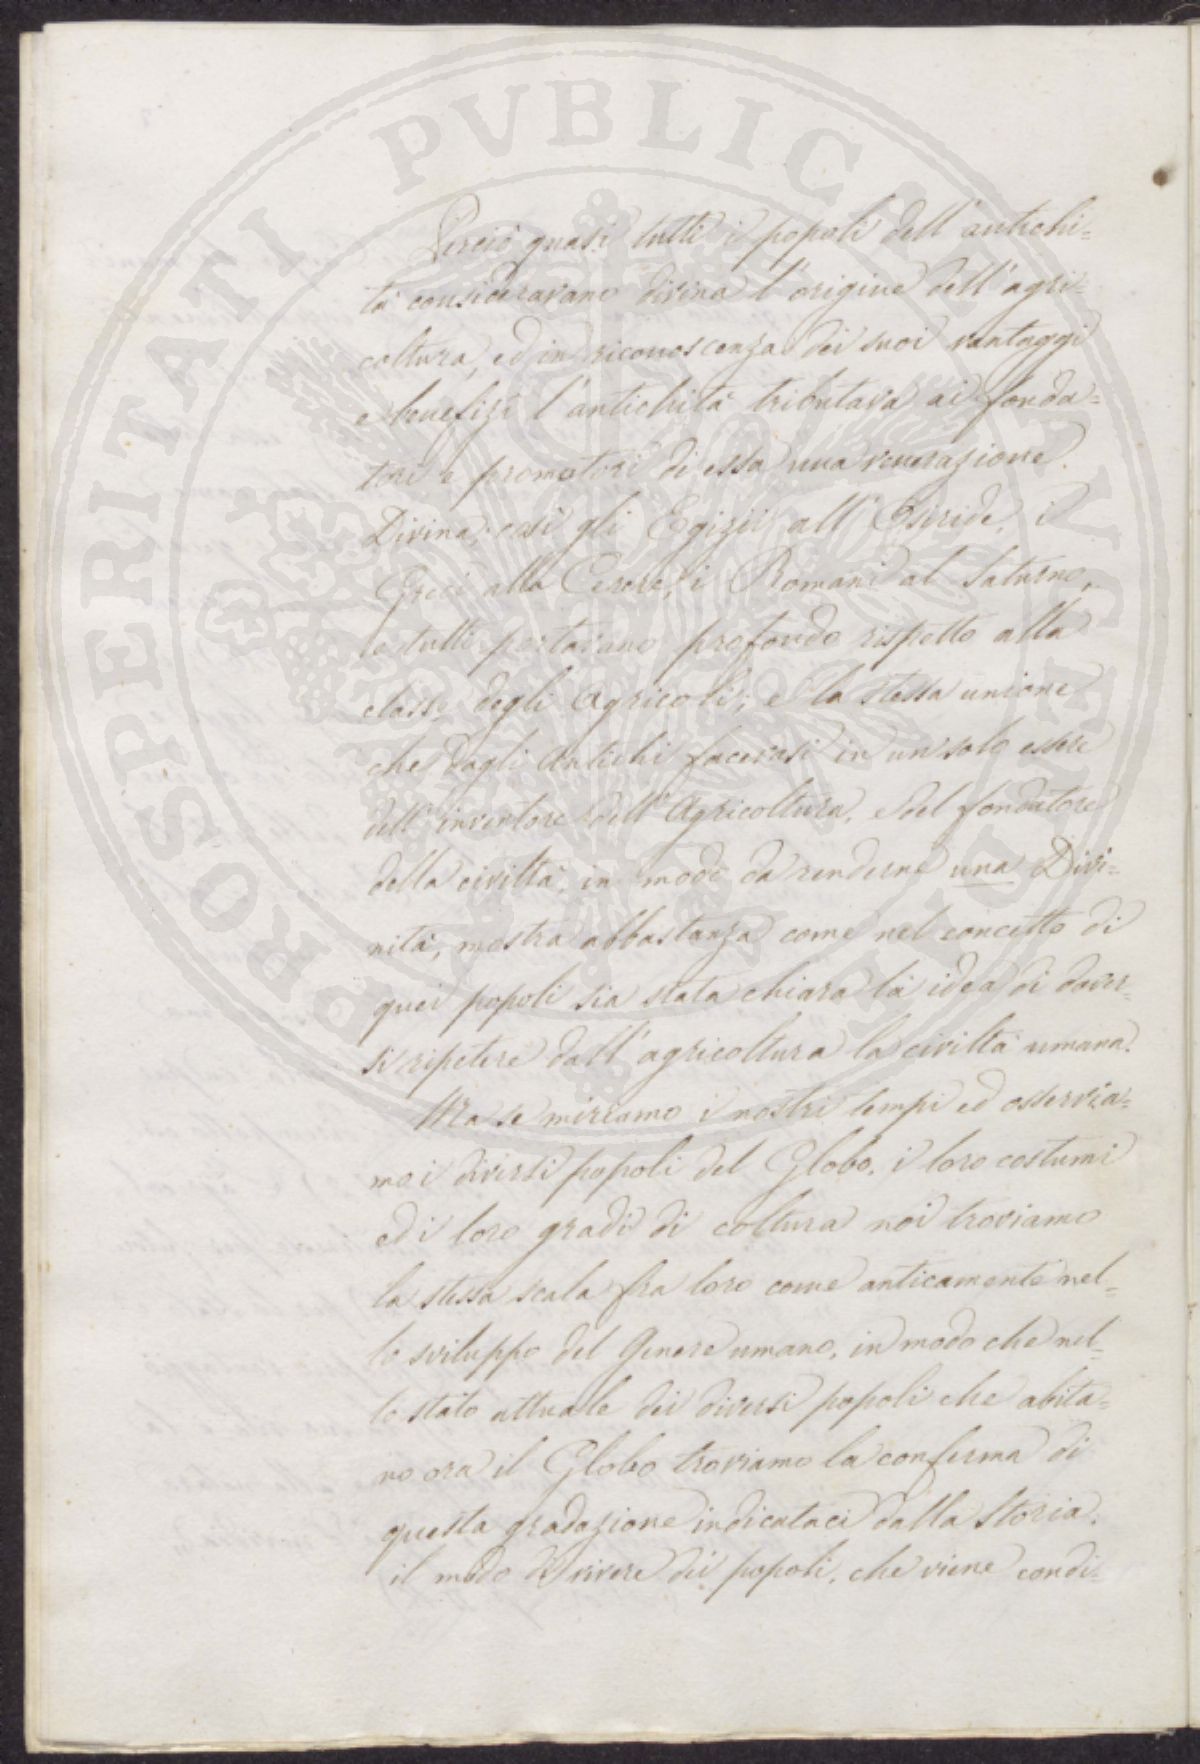 Perciò quasi tutti i popoli dell'antichi=
tà consideravano divina l'origine dell'agri=
coltura, ed in riconoscenza dei suoi vantaggi
e benefizi l'antichità tributava ai fonda=
tori e promotori di essa una venerazione
Divina, così gli Egizii all'Osiride, i
Greci alla Cerere, i Romani al Saturno,
e tutti portavano profondo rispetto alla
classe degli Agricoli; e la stessa unione
che dagli Antichi facevasi in un solo essere
dell'inventore dell'Agricoltura, e del fondatore
della civiltà, in modo da renderne una Divi=
nità, mostra abbastanza come nel concetto di
quei popoli sia stata chiara la idea di dover=
si ripetere dall'agricoltura la civiltà umana.
Ma se miriamo i nostri tempi ed osservia=
mo i diversi popoli del Globo, i loro costumi
ed i loro gradi di coltura noi troviamo
la stessa scala fra loro come anticamente nel=
lo sviluppo del Genere umano, in modo che nel=
lo stato attuale dei diversi popoli che abita=
no ora il Globo troviamo la conferma di
questa gradazione indicataci dalla Storia.
il modo di vivere dei popoli, che viene condi=
PROSPERITATI PVBLICAE AVGENDAE